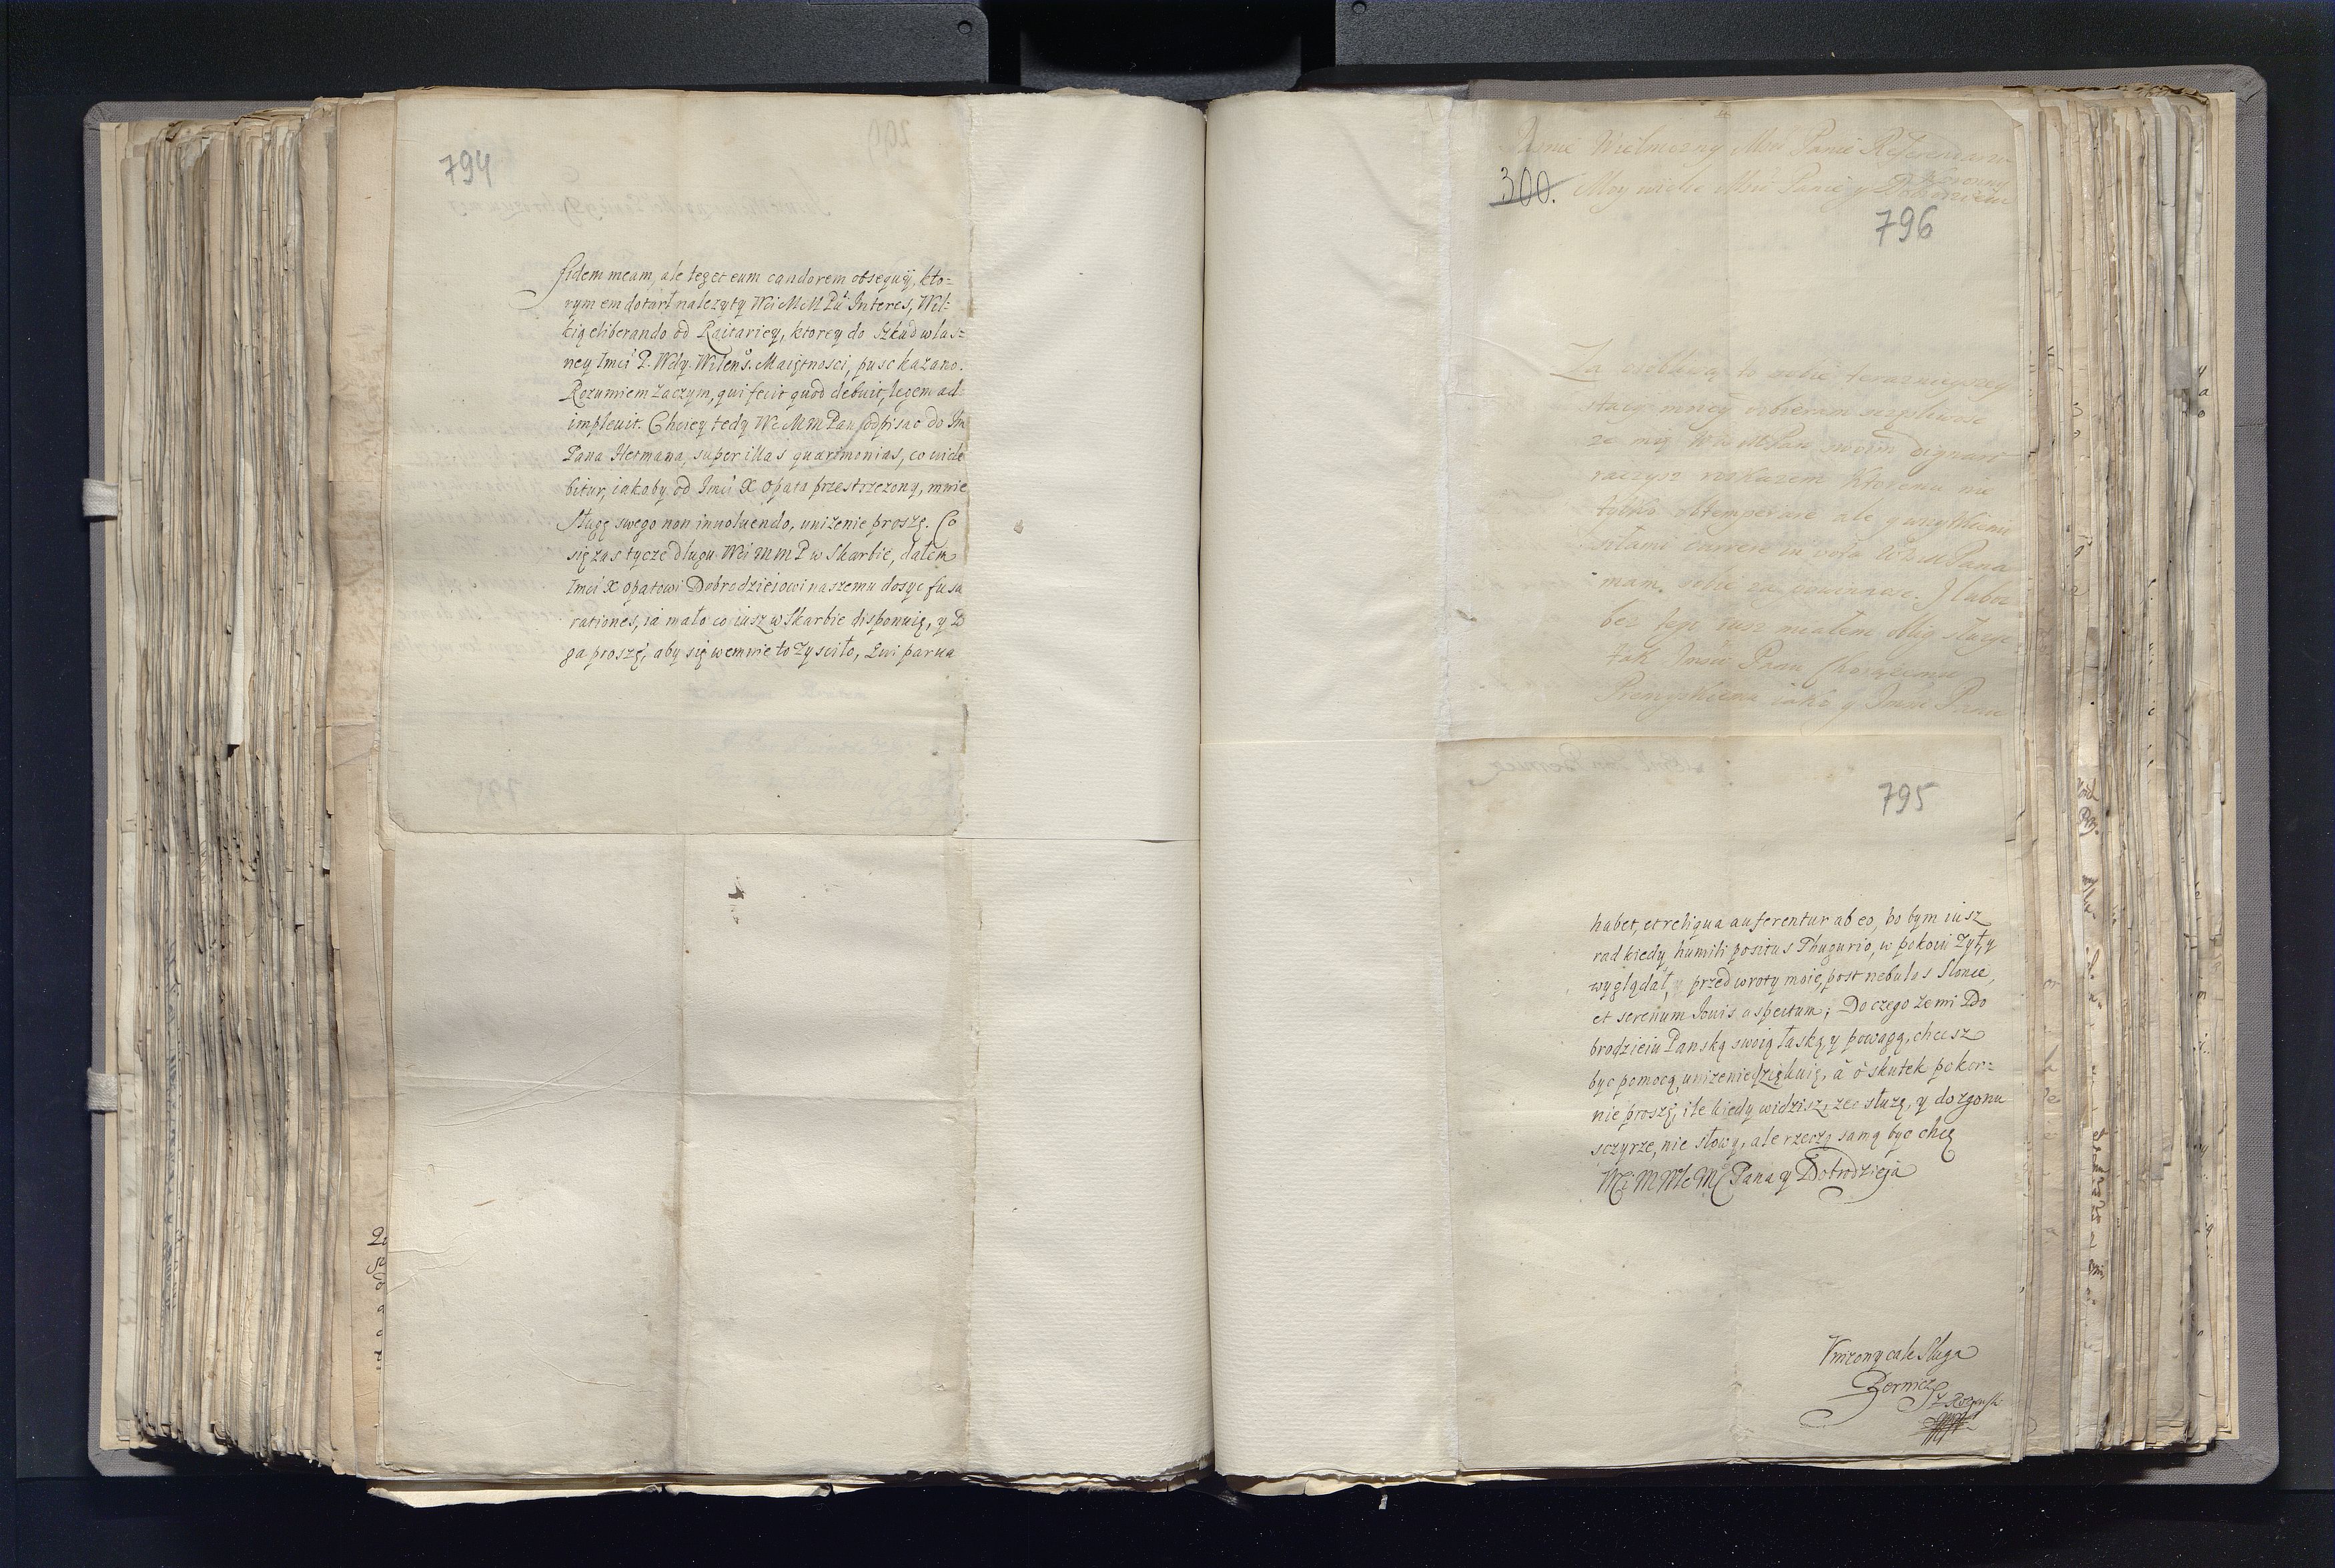 794
fidem meam, ale teget eum candorem obsequij, kto=
rym em dotarł należyty WciMcMPa Interes, Wil=
kią eliberando od Raitariey, ktorey do Szkud włas=
ney Imci P. Wdy. Wileńs. Maiętności, pusc kazano.
Rozumiem zaczym, qui fecit quod debuit, legem ad=
impleuit. Chciey tedy Wc MmPan odpisac do Im
Pana Hetmana, super illas quaerimonias, co vide
bitur, iakoby od Imci X Opata przestrzezony, mnie
Sługę swego non inuoluendo, uniżenie proszę. Co
się zas tycze długu Wci mmP w Skarbie, dałem
Imci X Opatowi Dobrodzieiowi naszemu dosyc fusa
rationes, ia mało co iusz w Skarbie disponuię, y
ga proszę, aby się wemnie to zysciło, Qui parua
300.
Jasnie Wielmozny Msci Panie Referendarzu
Koronny
Moy wielce Msci Panie y Dobrodzieiu
796
Za osobliwą to sobie teraznieyszey
staey moiey odbieram szczęsliwosc
ze mię Wm MPan swoim dignari
raczysz roskazem ktoremu nie
tylko obtemperare ale y wszytkiemi
siłami currere in vota WMMPana
mam sobie za powinnosc. I lubo
bez tego iusz miałem Obligatią
tak Jmsci Panu Chorążemu
Przemyskiemu iako y Jmsci Panu
795
habet, et reliqua auferentur ab eo, bo bym iusz
rad kiedy, humili positus Thugurio, w pokoiu żył, y
wyglądał, y przed wroty moie, post nebulas Słonce,
et serenum Iouis aspectum; Do czego że mi Do
brodzieiu Panską swoią łaską, y powagą, chcesz
byc pomocą, uniżenie dziękuię, a o skutek pokor=
nie proszę, ile kiedy widzisz, żec służę, y do zgonu
sczyrze, nie słowy, ale rzeczą samą byc chcę
Wci MMc Mc Pana y Dobrodzieja
Vniżony cale Sługa